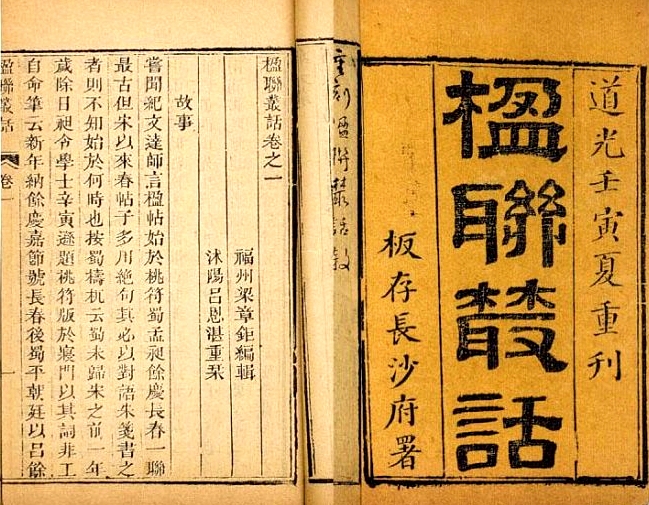 道光壬寅夏重刊
楹聯叢話
板存長沙府署
重刻楹聯叢話敘
楹聯叢話卷之一
福州梁章鉅編輯
沭陽呂恩湛重栞
故事
嘗聞紀文達師言楹帖始於桃符蜀孟昶餘慶長春一聯
最古但宋以來春帖子多用絕句其必以對語朱箋書之
者則不知始於何時也按蜀檮杌云蜀未歸宋之前一年
歲除日昶令學士辛寅遜題桃符版於寢門以其詞非工
自命筆云新年納餘慶嘉節號長春後蜀平朝廷以呂餘
楹聯叢話
卷一
一